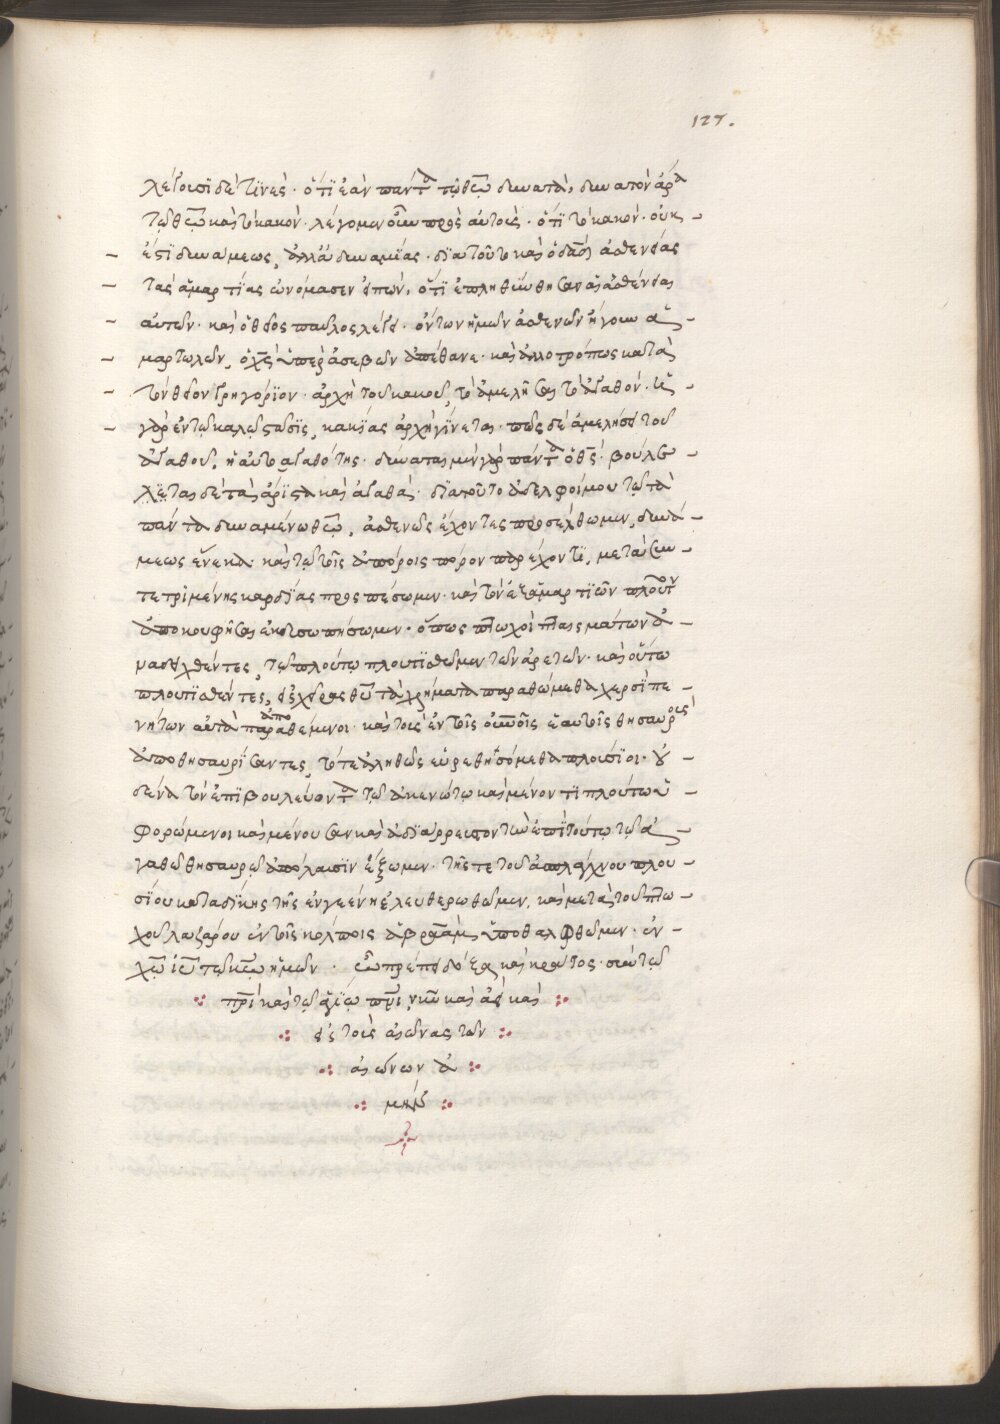 127.
λέγουσι δέ τινες· ὅτι ἐὰν πάντα τῷ θεῷ δυνατά, δυνατὸν ἄρα
τῷ θεῷ καὶ τὸ κακόν· λέγομεν οὖν πρὸς αὐτοὺς· ὅτι τὸ κακόν· οὐκ -
- ἔστι δυνάμεως, ἀλλὰ ἀδυναμίας· διὰ τοῦτο καὶ ὁ δαδ ἀσθενείας
- τὰς ἁμαρτίας ὠνόμασεν εἰπών, ὅτι ἐπληθύνθησαν αἱ ἀσθένειαι
- αὐτῶν· καὶ ὁ θεῖος παῦλος λέγει· ὄντων ἡμῶν ἀσθενῶν ἤγουν ἁ -
- μαρτωλῶν, ὁ χς ὑπὲρ ἀσεβῶν ἀπέθανε· καὶ ἀλλοτρόπως κατὰ
- τὸν θεῖον γρηγόριον· ἀρχὴ τοῦ κακοῦ, τὸ ἀμελῆσαι τὸ ἀγαθόν· ἡ -
- γὰρ ἐν τῷ καλῷ στάσις, κακίας ἀρχὴ γίνεται· πῶς δὲ ἀμελήσει τοῦ
ἀγαθοῦ, ἡ αὐτοαγαθότης· δύναται μὲν γὰρ πάντα ὁ θς· βούλε -
λεται δὲ τὰ ἄριστα καὶ ἀγαθά· διατοῦτο ἀδελφοί μου τῷ τὰ
πάντα δυναμένω θεῷ, ἀσθενῶς ἔχοντες προσέλθωμεν, δυνά -
μεως ἕνεκα· καὶ τῷ τοῖς ἀπόροις πόρον παρέχοντι, μετὰ συν -
τετριμμένης καρδίας προσπέσωμεν· καὶ τὸν ἐξ ἁμαρτιῶν πλοῦτον
ἀποκουφῆσαι ἐκδυσωπήσωμεν· ὅπως πτωχοὶ πταισμάτων ἀ -
ναδειχθέντες, τῷ πλούτῳ πλουτισθῶμεν τῶν ἀρετῶν· καὶ οὕτω
πλουτισθέντες, εἰς χεῖρας θυ τὰ χρήματα παραθώμεθα χερσὶ πε -
νήτων αὐτὰ παραθέμενοι· καὶ τοὺς ἐν τοῖς οὐνοῖς ἑαυτοῖς θησαυροὺς
ἀποθησαυρίσαντες, τότε ἀληθῶς εὑρεθησόμεθα πλούσιοι· οὐ -
δένα τὸν ἐπιβουλεύοντα τῷ ἀκενώτω καὶ μένοντι πλούτω ὑ -
φορώμενοι καὶ μένουσαν καὶ ἀδιάρρευστον τὴν ἐπὶ τούτω τῷ ἀ -
γαθῷ θησαυρῷ ἀπόλαυσιν ἕξωμεν· τῆς τε τοῦ ἀσπλάγχνου πλου -
σίου καταδίκης τῆς ἐν γεένη ἐλευθερωθῶμεν, καὶ μετὰ τοῦ πτω -
χοῦ λαζάρου ἐν τοῖς κόλποις ἀβραὰμ ὑποθαλφθῶμεν· ἐν -
χω ιυ τῷ κω ἡμῶν· ὧ πρέπει δόξα καὶ κράτος· σὺν τῷ
πρι καὶ τῷ ἁγίω πνι, νυν καὶ ἀεὶ καὶ
εἰς τοὺς αἰῶνας τῶν
αἰώνων ἀ
μήν